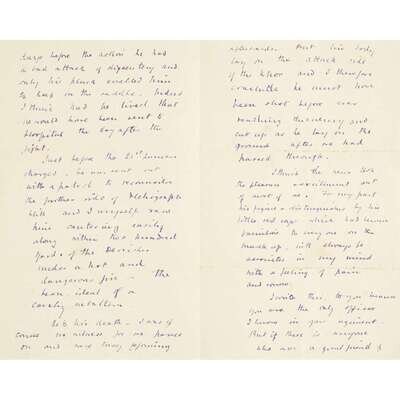 days before the action he had
a bad attack of dysentery and
only his pluck enabled him
to keep in the saddle. Indeed
I think had he lived that
he would have been sent to
hospital the day after the
fight.
Just before the 21st Lancers
charged he was sent out
with a patrol to reconnoitre
the further side of Heliograph
Hill and I myself saw
him cantering easily
along within two hundred
yards of the Dervishes
under a hot and
dangerous fire - the
beau ideal of a
cavalry
To his death - I was of
course no witness for we passed
on and
But his body
lay on the attack side
of the khor and I therefore
conclude he must have
been shot before ever
reaching the enemy and
cut up as he lay on the
ground after we had
passed through.
I think the race
the pleasant excitement out
of most of us. For my part
his figure - distinguished by his
little red caps which had been
familiar to everyone on the
march up, will always be
associated in my mind
with a feeling of pain
and sorrow.
I write this to you because
you are the only officer
I know in your regiment.
But if there is anyone
who was a great friend of